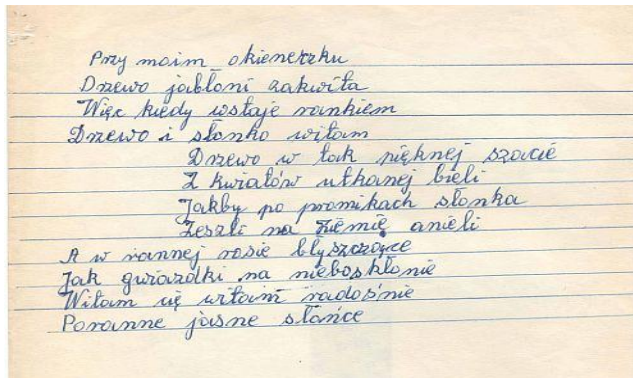 Przy moim okieneczku
Drzewo jabłoni zakwita
Więc kiedy wstaje rankiem
Drzewo i słonko witam
Drzewo w tak pięknej szacie
Z kwiatów utkanej bieli
Jakby po promikach słonka
Zeszli na ziemię anieli
A w rannej rosie błyszczące
Jak gwiazdki na nieboskłonie
Witam się witam radośnie
Poranne jasne słońce